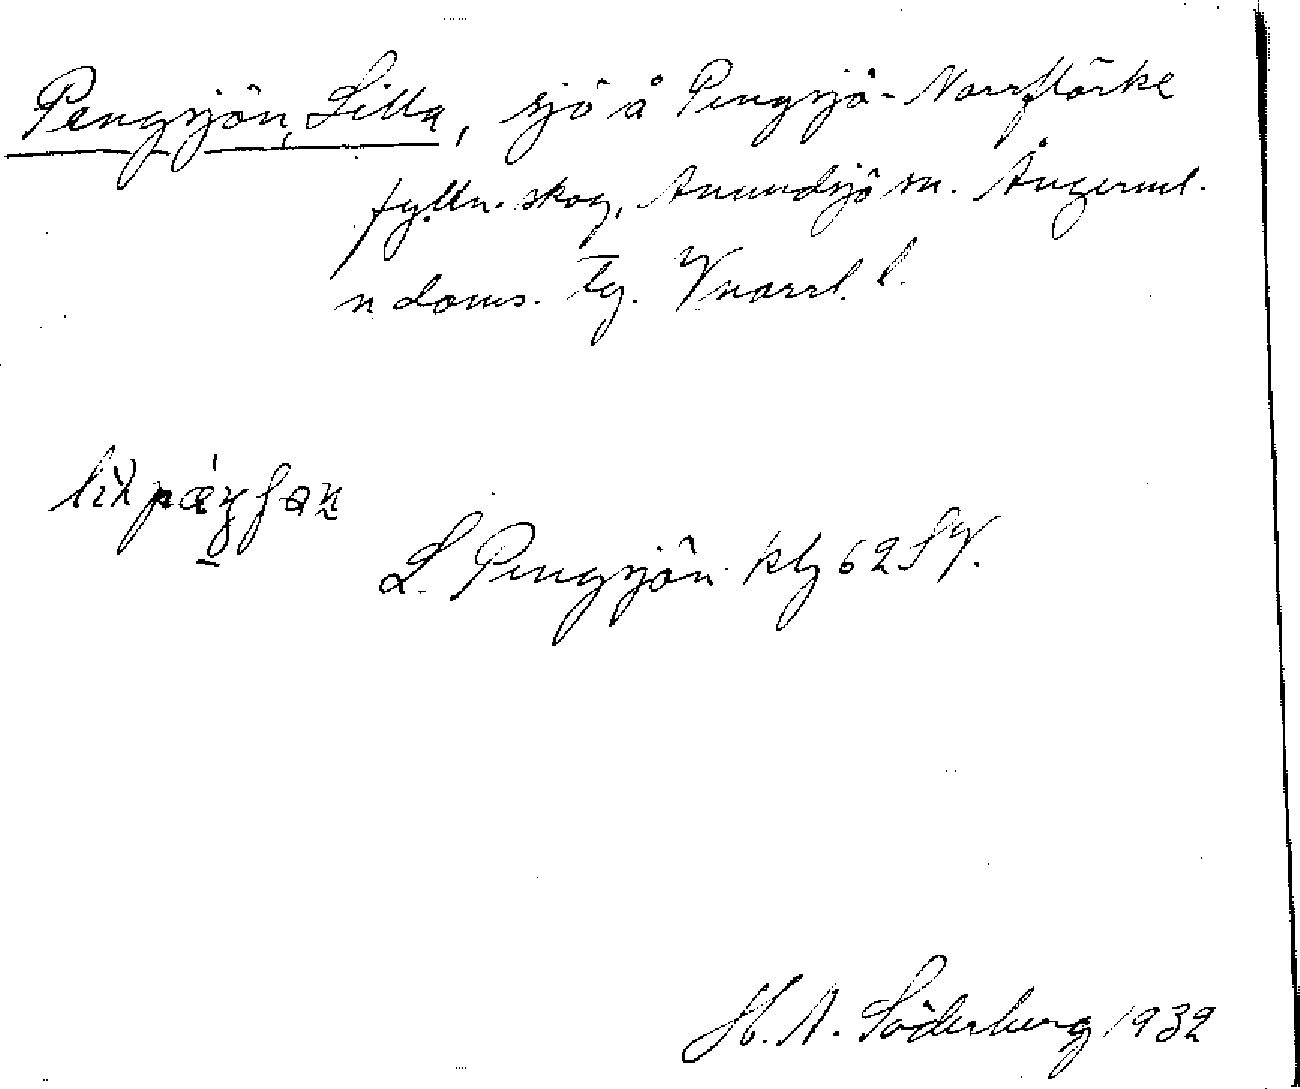 Pengsjön, Lilla, sjö å Pengsjö-Norrflärke
fylln. skog, Anundsjö sn. Ångerml.
n doms. tg. Vnorrl. l.
L. Pengsjön kbg 62 SV.
H. A. Söderberg 1932